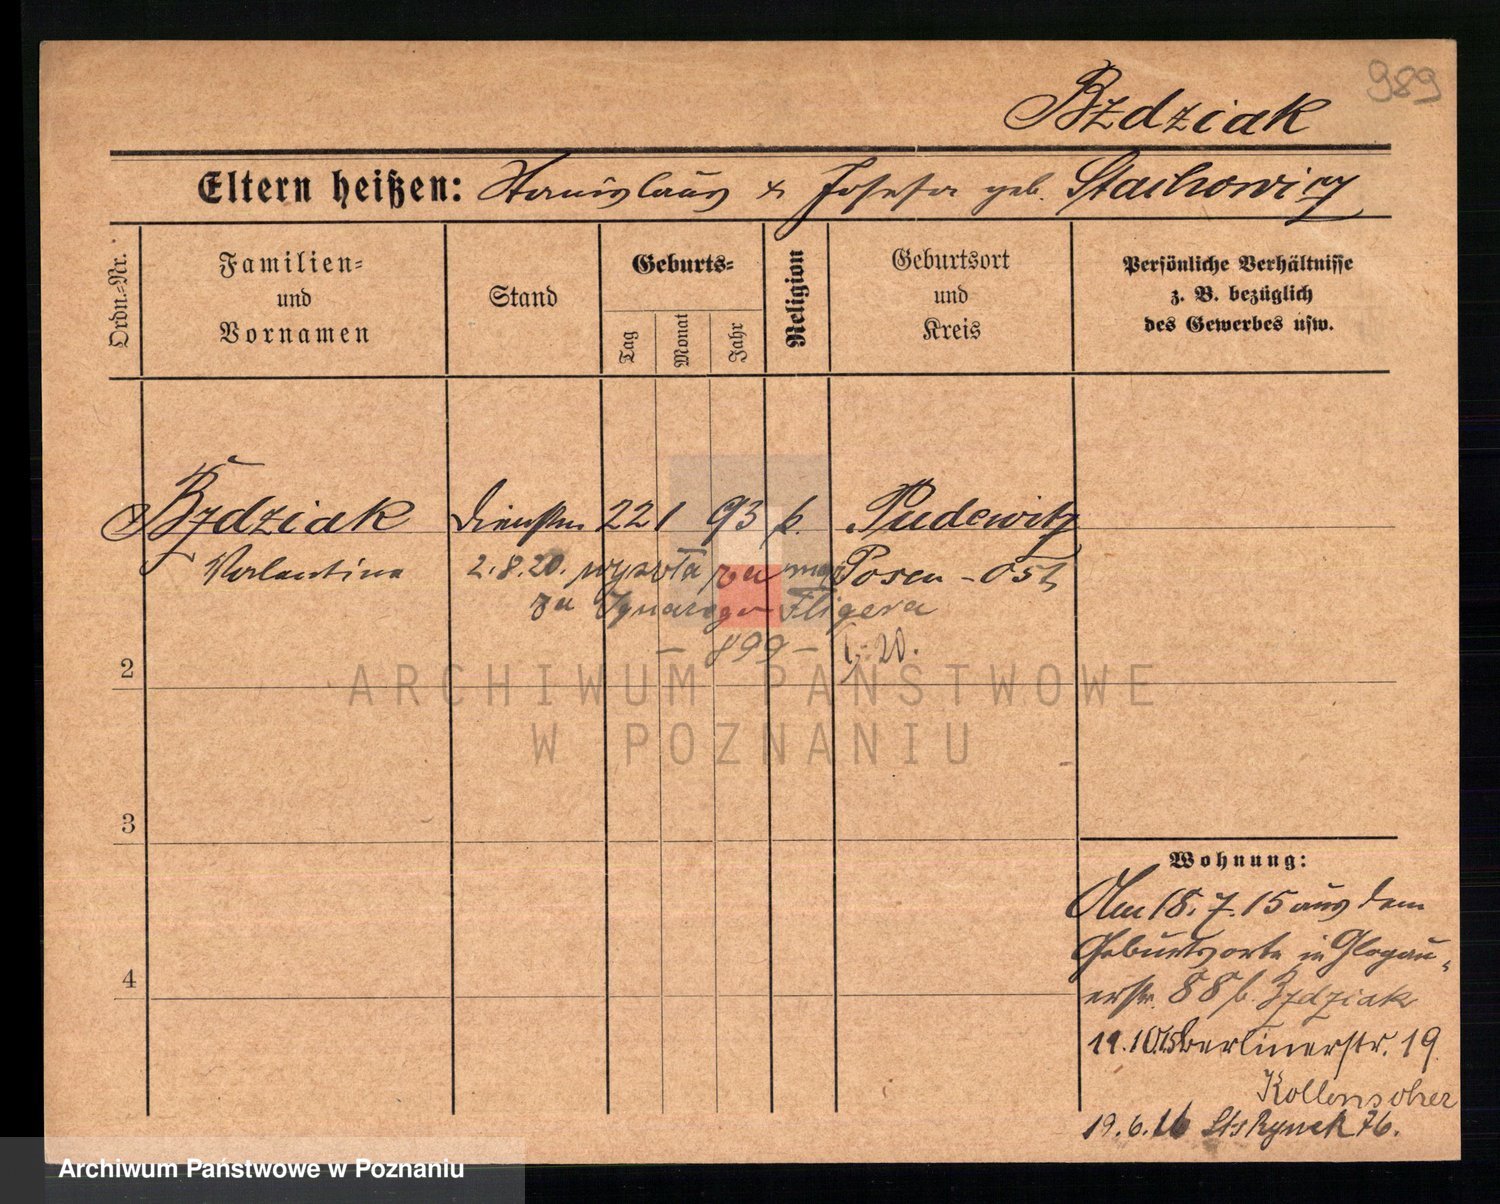 989
Bzdziak
Eltern heißen: Stanislaus & Josefa geb. Stachowicz
Ordn.-Nr.
Familien-
und
Vornamen
Stand
Geburts-
Tag
Monat
Jahr
Religion
Geburtsort
und
Kreis
Persönliche Verhältnisse
z. B. bezüglich
des Gewerbes usw.
Bzdziak 22 1 93 k. Pudewitz
Valentine 2.8.20. wyszła za mąż Posen-Ost
za Fligera
- 899 - 20.
2
3
4
ARCHIWUM PAŃSTWOWE
W POZNANIU
Wohnung:
Am 18.7.15 aus dem
Geburtsorte in Glogau-
erstr. 88 b. Bzdziak
Berlinerstr. 19
19.6.16 Rynek 76.
Archiwum Państwowe w Poznaniu